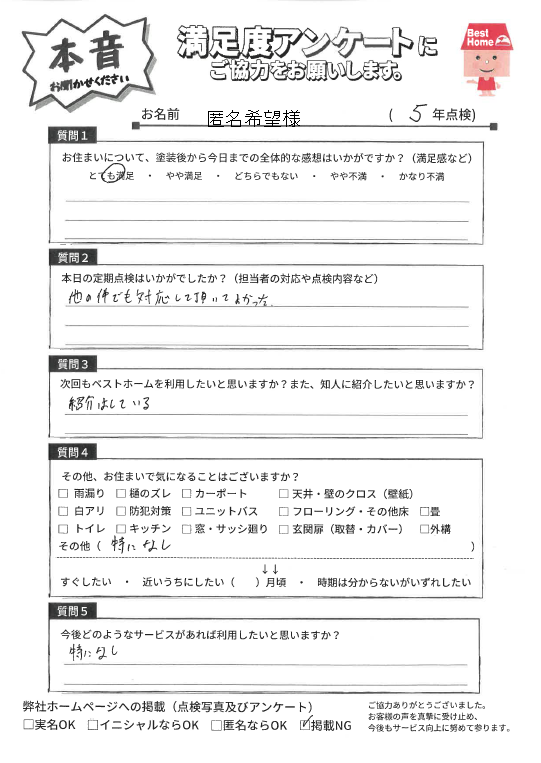 本音
お聞かせください
満足度アンケートに
ご協力をお願いします。
Best
Home
お名前 匿名希望様 ( 5 年点検)
質問1
お住まいについて、塗装後から今日までの全体的な感想はいかがですか？（満足感など）
とても満足 ・ やや満足 ・ どちらでもない ・ やや不満 ・ かなり不満
質問2
本日の定期点検はいかがでしたか？（担当者の対応や点検内容など）
他の件でも対応して頂いてよかった。
質問3
次回もベストホームを利用したいと思いますか？また、知人に紹介したいと思いますか？
紹介はしている
質問4
その他、お住まいで気になることはございますか？
□ 雨漏り □ 樋のズレ □ カーポート □ 天井・壁のクロス（壁紙）
□ 白アリ □ 防犯対策 □ ユニットバス □ フローリング・その他床 □畳
□ トイレ □ キッチン □ 窓・サッシ廻り □ 玄関扉（取替・カバー） □外構
その他（ 特になし ）
↓↓
すぐしたい ・ 近いうちにしたい（ ）月頃 ・ 時期は分からないがいずれしたい
質問5
今後どのようなサービスがあれば利用したいと思いますか？
特になし
弊社ホームページへの掲載（点検写真及びアンケート）
□実名OK □イニシャルならOK □匿名ならOK ☑掲載NG
ご協力ありがとうございました。
お客様の声を真摯に受け止め、
今後もサービス向上に努めて参ります。